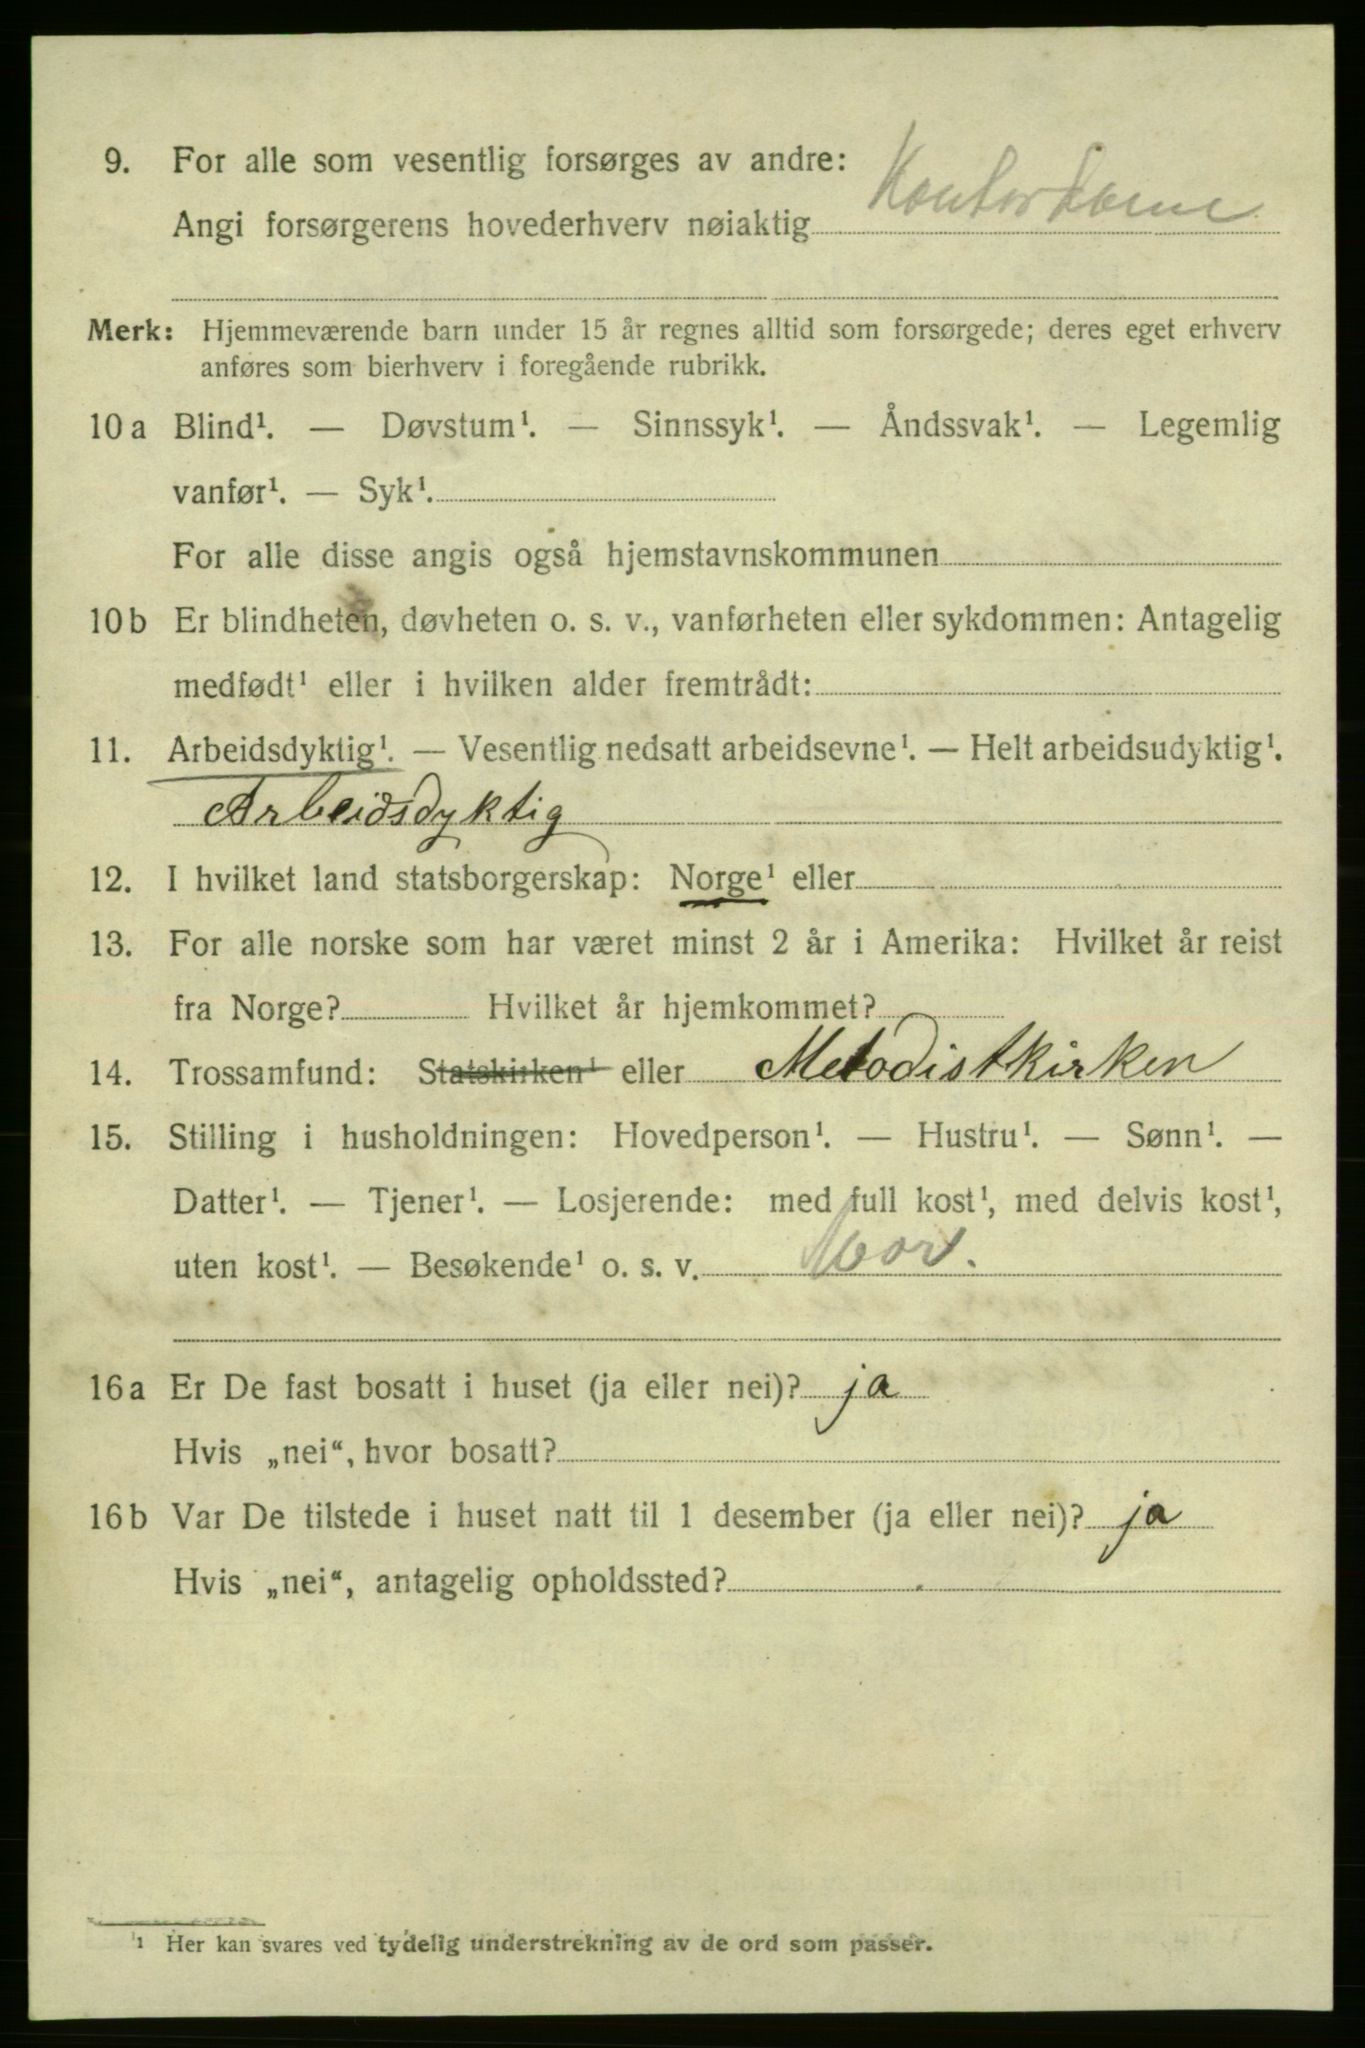 9. For alle som vesentlig forsørges av andre:
Angi forsørgerens hovederhverv nøiaktig Kontordame
Merk: Hjemmeværende barn under 15 år regnes alltid som forsørgede; deres eget erhverv
anføres som bierhverv i foregående rubrikk.
10 a Blind¹. — Døvstum¹. — Sinnssyk¹. — Åndssvak¹. — Legemlig
vanfør¹. — Syk¹.
For alle disse angis også hjemstavnskommunen
10 b Er blindheten, døvheten o. s. v., vanførheten eller sykdommen: Antagelig
medfødt¹ eller i hvilken alder fremtrådt:
11. Arbeidsdyktig¹. — Vesentlig nedsatt arbeidsevne¹. — Helt arbeidsudyktig¹.
Arbeidsdyktig
12. I hvilket land statsborgerskap: Norge¹ eller
13. For alle norske som har været minst 2 år i Amerika: Hvilket år reist
fra Norge? Hvilket år hjemkommet?
14. Trossamfund: Statskirken¹ eller Metodistkirken
15. Stilling i husholdningen: Hovedperson¹. — Hustru¹. — Sønn¹. —
Datter¹. — Tjener¹. — Losjerende: med full kost¹, med delvis kost¹,
uten kost¹. — Besøkende¹ o. s. v. Mor.
16 a Er De fast bosatt i huset (ja eller nei)? ja
Hvis „nei“, hvor bosatt?
16 b Var De tilstede i huset natt til 1 desember (ja eller nei)? ja
Hvis „nei“, antagelig opholdssted?
¹ Her kan svares ved tydelig understrekning av de ord som passer.